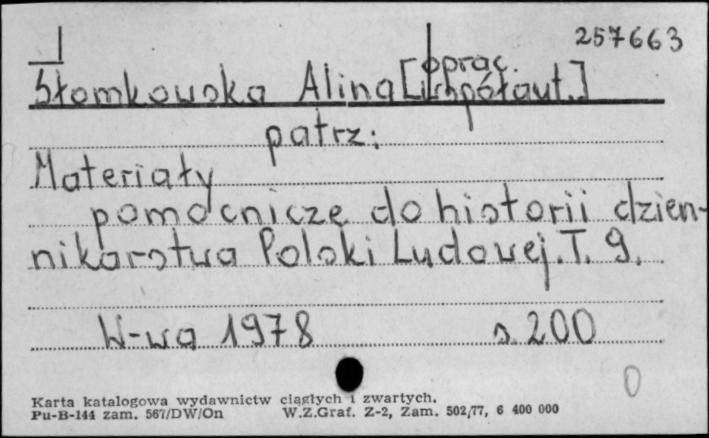 257663
oprac.
Słomkowska Alina [współaut.]
patrz:
Materiały
pomocnicze do historii dzien-
nikarstwa Polski Ludowej. T. 9.
W-wa 1978 s. 200
0
Karta katalogowa wydawnictw ciągłych i zwartych.
Pu-B-144 zam. 567/DW/On W.Z.Graf. Z-2, Zam. 502/77, 6 400 000